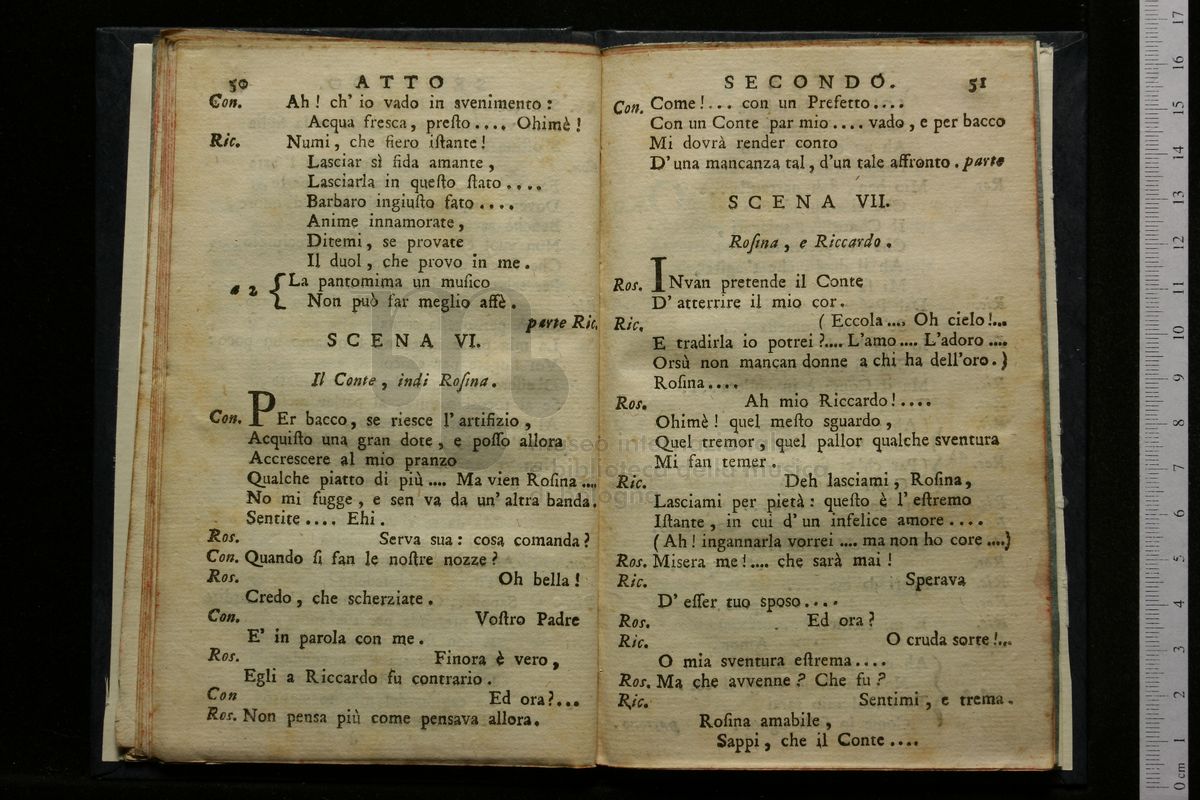 50 ATTO
Con. Ah! ch' io vado in svenimento:
Acqua fresca, presto.... Ohimè!
Ric. Numi, che fiero istante!
Lasciar sì fida amante,
Lasciarla in questo stato....
Barbaro ingiusto fato....
Anime innamorate,
Ditemi, se provate
Il duol, che provo in me.
a 2 { La pantomima un musico
Non può far meglio affè.
parte Ric.
SCENA VI.
Il Conte, indi Rosina.
Con. PEr bacco, se riesce l' artifizio,
Acquisto una gran dote, e posso allora
Accrescere al mio pranzo
Qualche piatto di più.... Ma vien Rosina....
No mi fugge, e sen va da un' altra banda.
Sentite.... Ehi.
Ros. Serva sua: cosa comanda?
Con. Quando si fan le nostre nozze?
Ros. Oh bella!
Credo, che scherziate.
Con. Vostro Padre
E' in parola con me.
Ros. Finora è vero,
Egli a Riccardo fu contrario.
Con Ed ora?...
Ros. Non pensa più come pensava allora.
SECONDO. 51
Con. Come!... con un Prefetto....
Con un Conte par mio.... vado, e per bacco
Mi dovrà render conto
D' una mancanza tal, d'un tale affronto. parte
SCENA VII.
Rosina, e Riccardo.
Ros. INvan pretende il Conte
D' atterrire il mio cor.
Ric. (Eccola.... Oh cielo!...
E tradirla io potrei?.... L'amo.... L'adoro....
Orsù non mancan donne a chi ha dell'oro.)
Rosina....
Ros. Ah mio Riccardo!....
Ohimè! quel mesto sguardo,
Quel tremor, quel pallor qualche sventura
Mi fan temer.
Ric. Deh lasciami, Rosina,
Lasciami per pietà: questo è l' estremo
Istante, in cui d' un infelice amore....
(Ah! ingannarla vorrei.... ma non ho core....)
Ros. Misera me!.... che sarà mai!
Ric. Sperava
D' esser tuo sposo....
Ros. Ed ora?
Ric. O cruda sorte!...
O mia sventura estrema....
Ros. Ma che avvenne? Che fu?
Ric. Sentimi, e trema.
Rosina amabile,
Sappi, che il Conte....
museo internazionale
e biblioteca della musica
bologna
0 cm 1 2 3 4 5 6 7 8 9 10 11 12 13 14 15 16 17